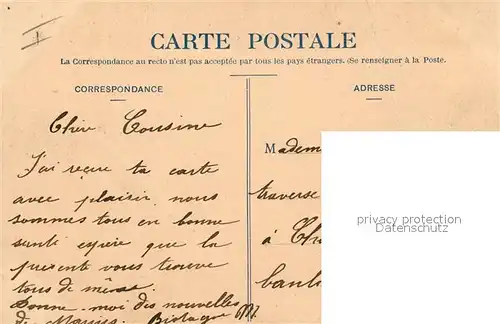 CARTE POSTALE
La Correspondance au recto n'est pas acceptée par tous les pays étrangers. (Se renseigner à la Poste.
CORRESPONDANCE
ADRESSE
Chère Cousine
J'ai reçue ta carte
avec plaisir nous
sommes tous en bonne
santé espère que la
présente vous trouve
tous de même.
Donne-moi des nouvelles
de Marius.
Madem
traverse
à Ch
banl
privacy protection